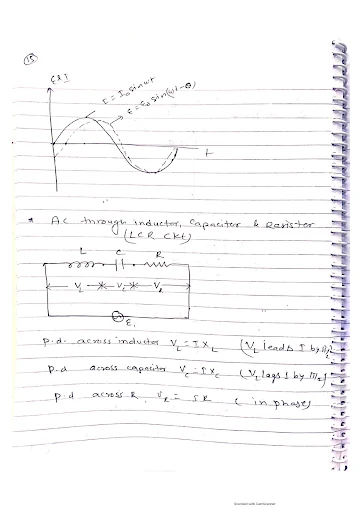 15
E & I
I = I₀ sin ωt
E = E₀ sin(ωt - θ)
t
* AC through inductor, Capacitor & Resistor
(LCR CKt)
L C R
V_L V_C V_R
E.
p.d. across inductor V_L = I X_L (V_L leads I by π/2)
p.d across capacitor V_C = I X_C (V_L lags I by π/2)
p.d across R, V_R = IR (in phase)
Scanned with CamScanner